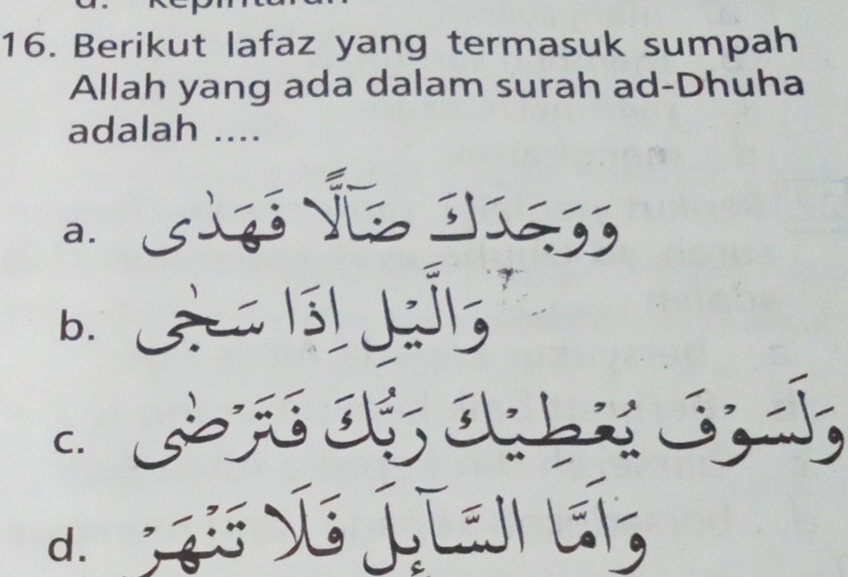 16. Berikut lafaz yang termasuk sumpah
Allah yang ada dalam surah ad-Dhuha
adalah ....
a. وَوَجَدَكَ ضَآلًّا فَهَدٰى
b. وَالَّيْلِ اِذَا سَجٰى
c. وَلَسَوْفَ يُعْطِيْكَ رَبُّكَ فَتَرْضٰى
d. وَاَمَّا السَّاۤىِٕلَ فَلَا تَنْهَرْ